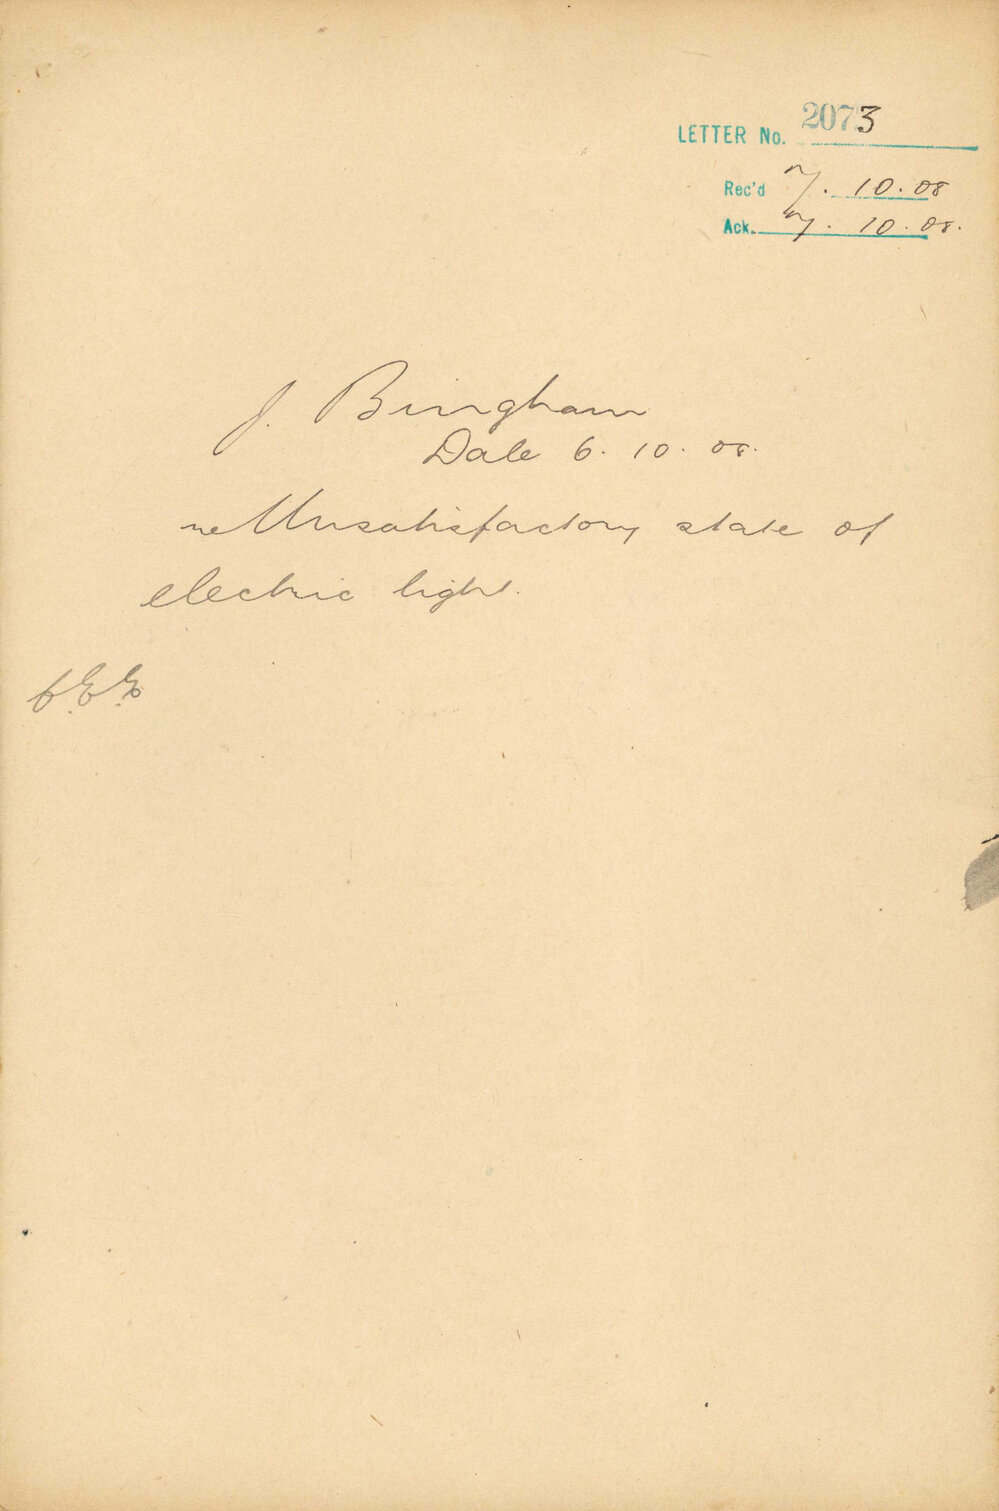 LETTER No. 2073
Rec'd 7. 10. 08
Ack. 7. 10. 08.
J. Bingham
Date 6. 10. 08.
re Unsatisfactory state of
electric light.